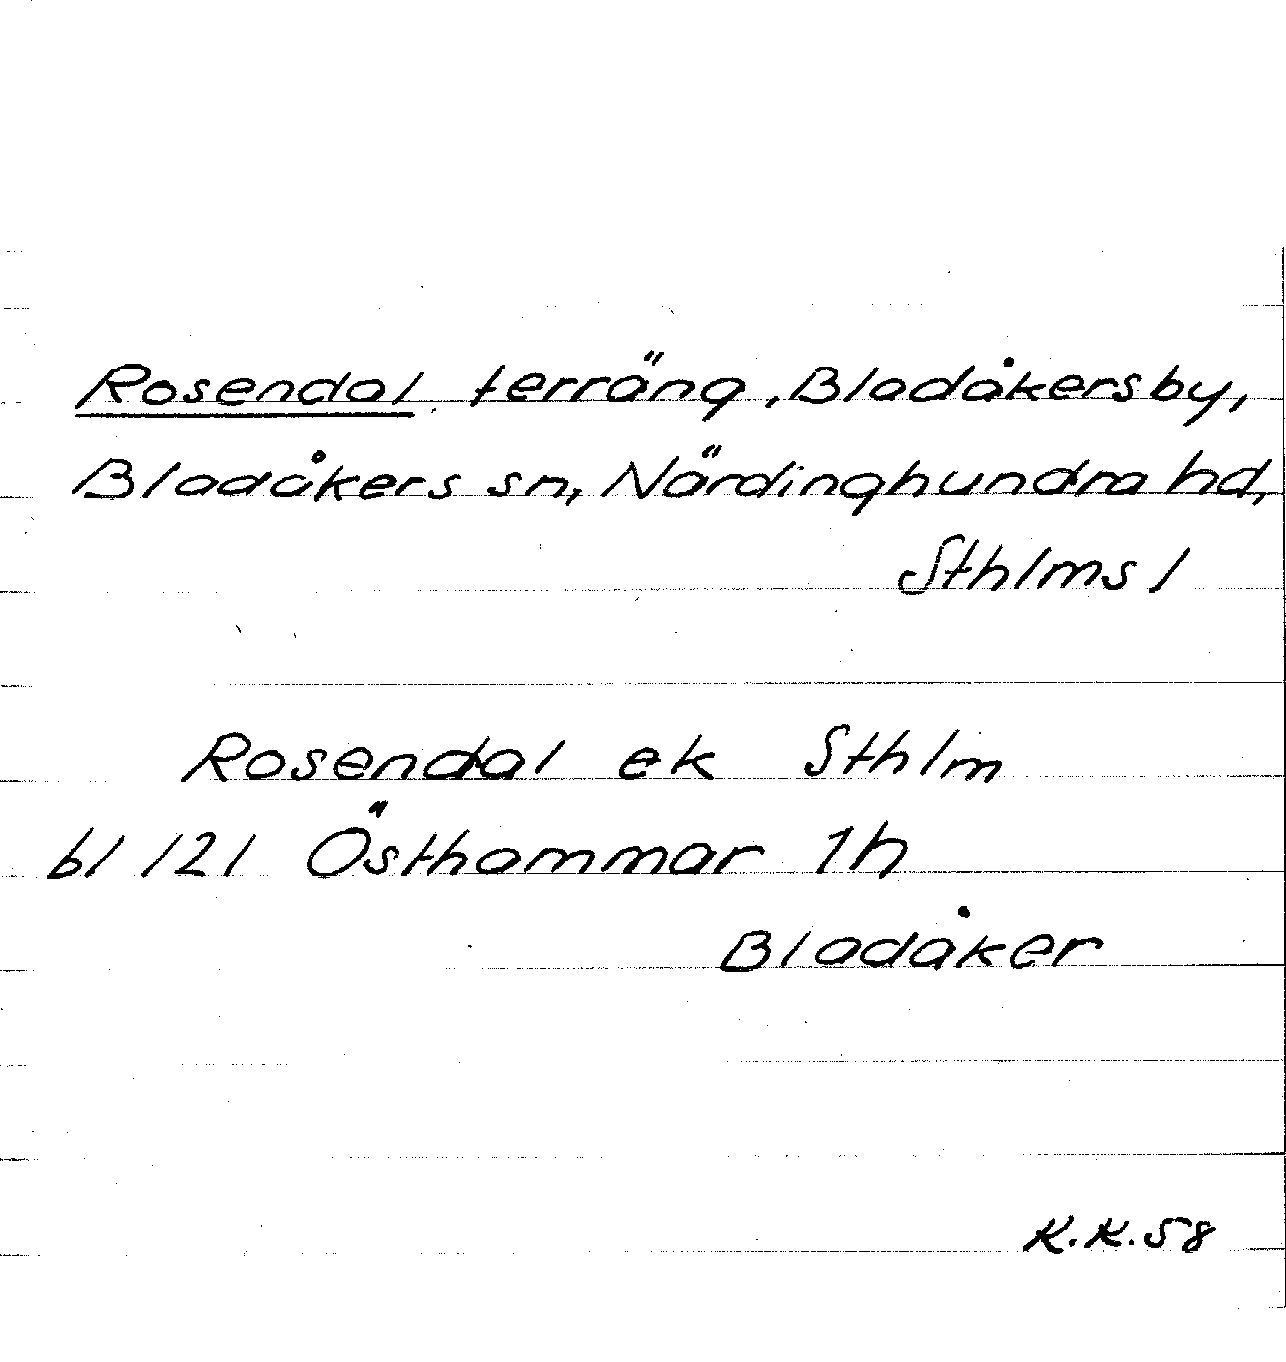 Rosendal terräng, Bladåkersby,
Bladåkers sn, Närdinghundra hd,
Sthlms l
Rosendal ek Sthlm
bl 121 Östhammar 1h
Bladåker
K.K.58